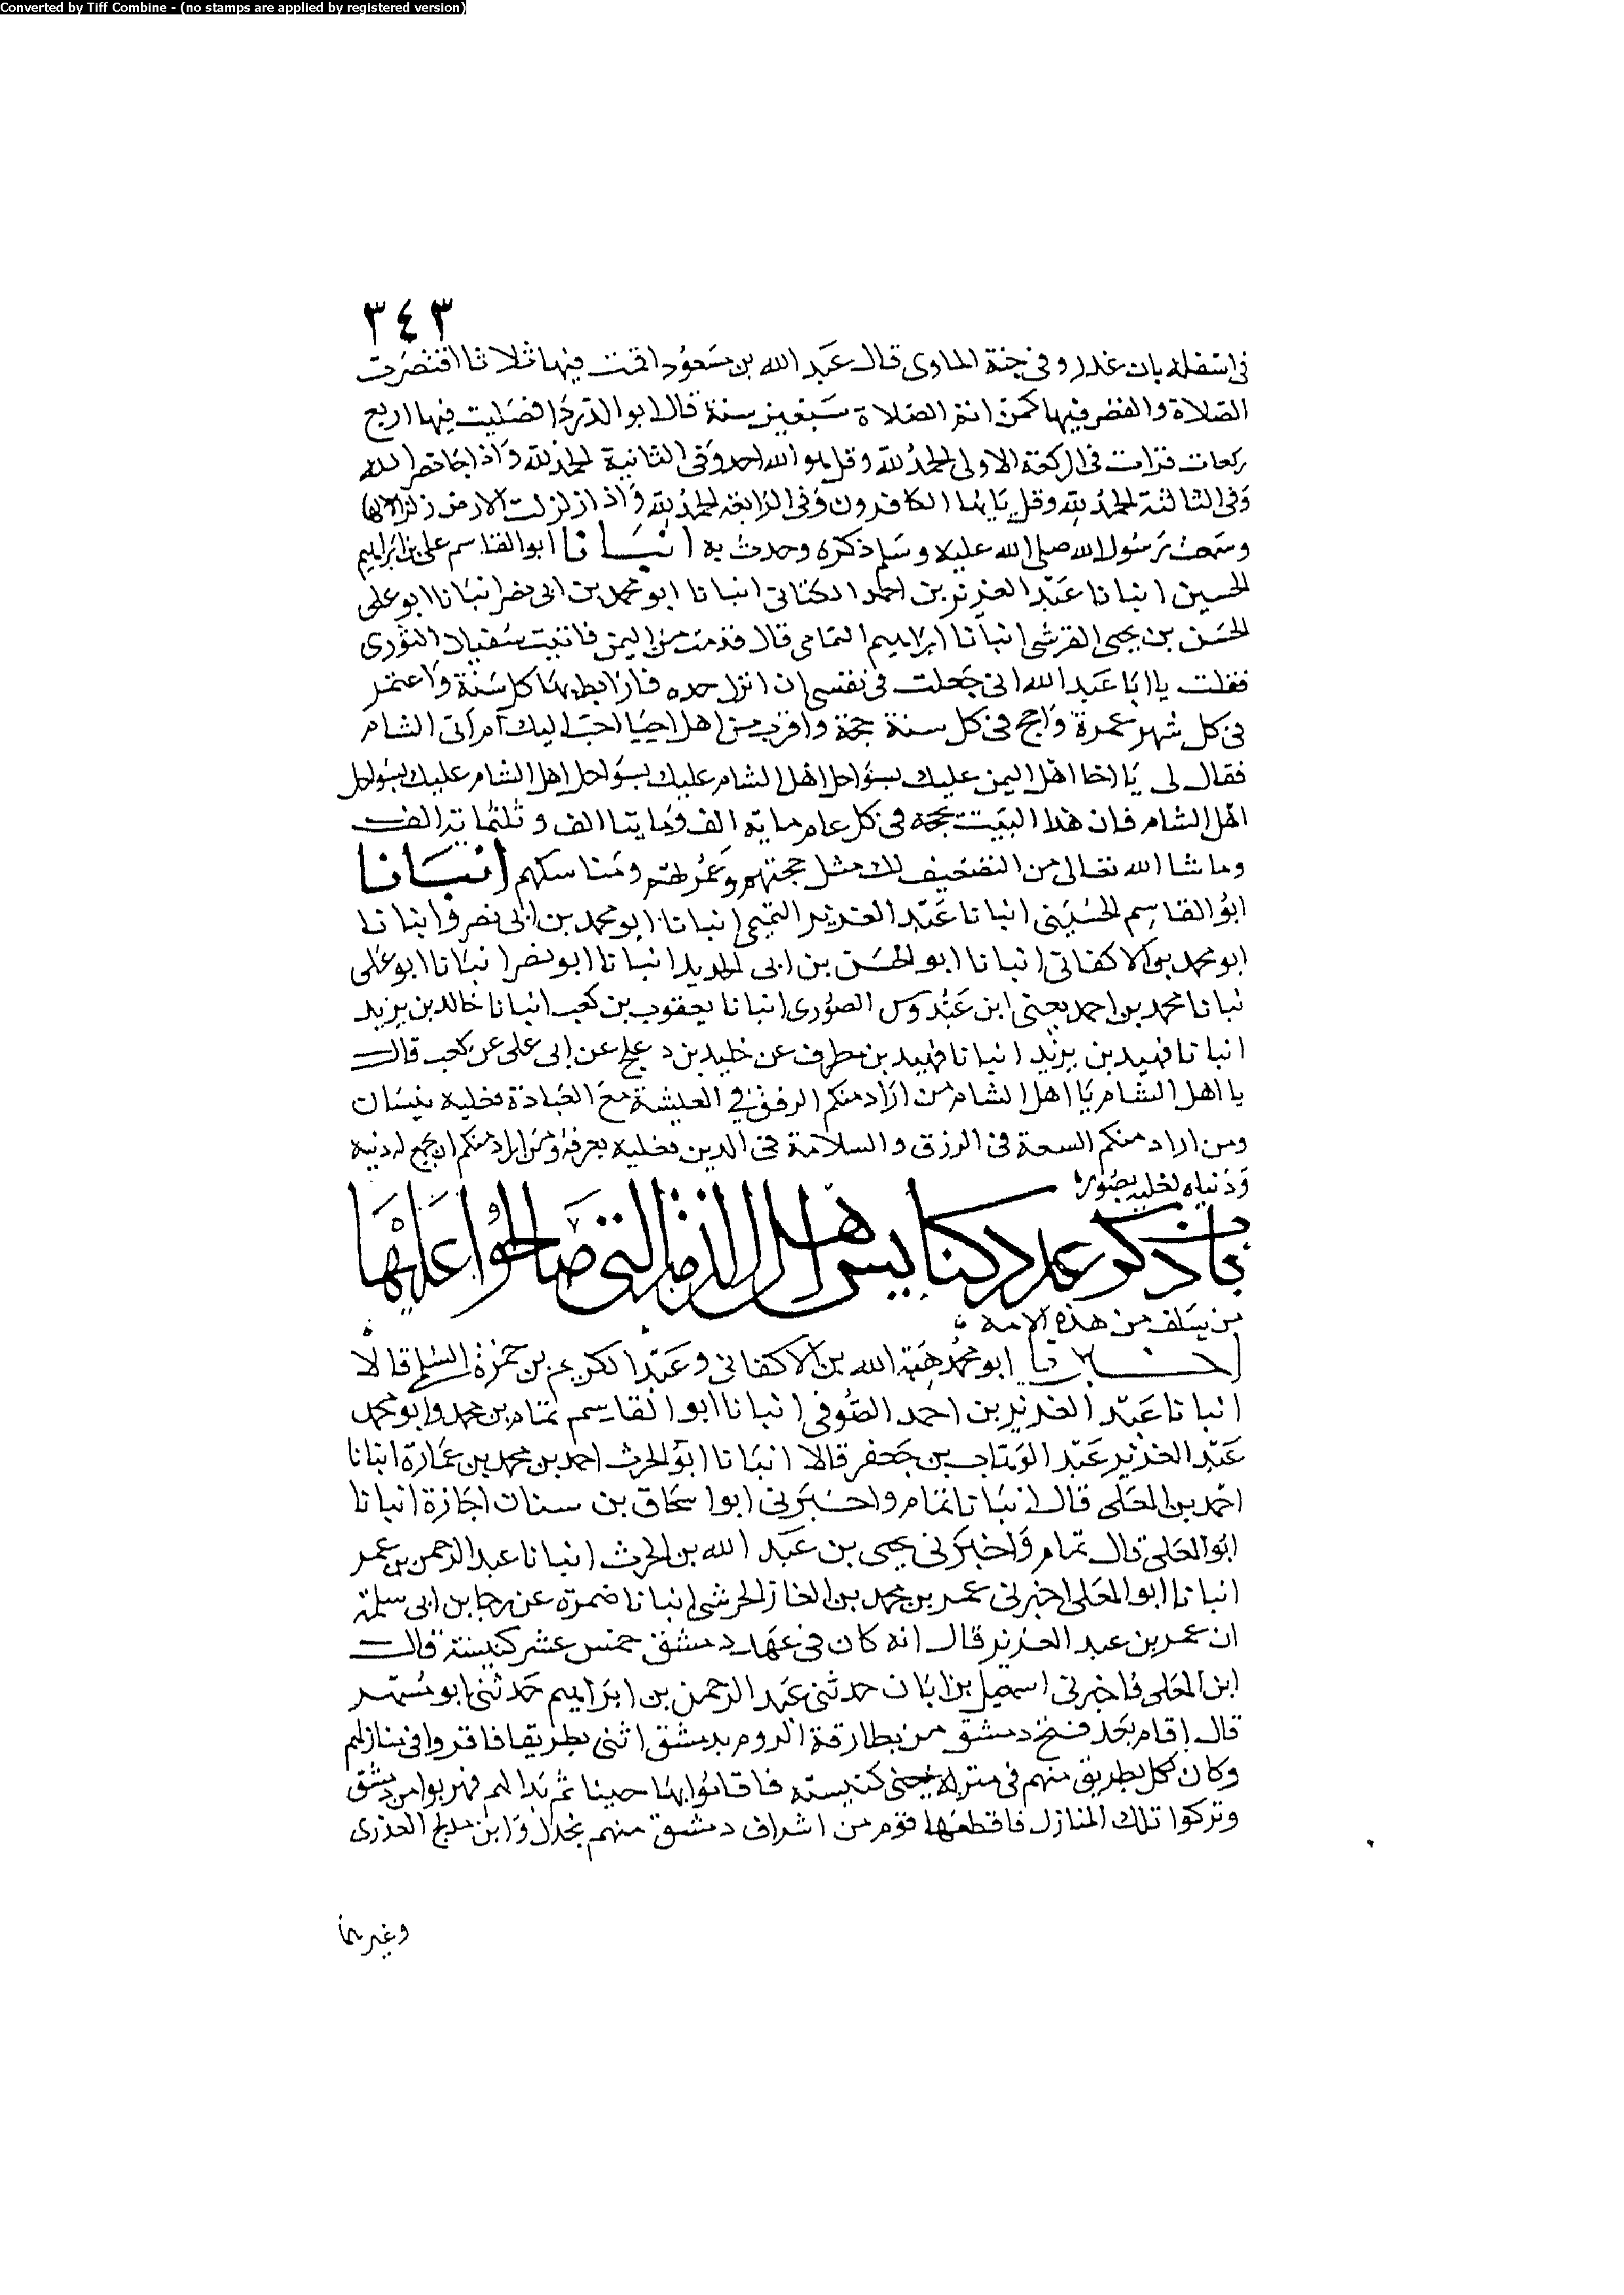 Converted by Tiff Combine - (no stamps are applied by registered version)
٣٤٣
في اسفله باب عدن وفي جنة الماوى قال عبد الله بن مسعود اقمت فيها ثلاثا اقتصرت
الصلاة والفطر فيها كمن اتم الصلاة سبعين سنة قال ابو الدردا فصليت فيها اربع
ركعات قرات في الركعة الاولى الحمد لله وقل هو الله احد وفي الثانية الحمد لله واذا جا نصر الله
وفي الثالثة الحمد لله وقل يايها الكافرون وفي الرابعة الحمد لله واذا زلزلت الارض زلزالها
وسمعت رسول الله صلى الله عليه وسلم ذكره وحدث به انبانا ابو القاسم علي بن ابراهيم
الحسين انبانا عبد العزيز بن احمد الكتاني انبانا ابو محمد بن ابي نصر انبانا ابو علي
الحسن بن يحيى القرشي انبانا ابراهيم اليمامي قال قدمت من اليمن فاتيت سفيان الثوري
فقلت يا ابا عبد الله اني جعلت في نفسي ان انزل جده فارابط بها كل سنة واعتمر
في كل شهر عمرة واحج في كل سنة حجة واقرب من اهلي احيا احب اليك ام اتي الشام
فقال لي يا اخا اهل اليمن عليك بسواحل اهل الشام عليك بسواحل اهل الشام عليك بسواحل
اهل الشام فان هذا البيت يحجه في كل عام ماية الف ومايتا الف وثلثماية الف
وما شا الله تعالى من التضعيف لك مثل حجتهم وعمرتهم ومناسكهم انبانا
ابو القاسم الحسيني انبانا عبد العزيز التميمي انبانا ابو محمد بن ابي نصر وانبانا
ابو محمد بن الاكفاني انبانا ابو الحسن بن ابي الحديد انبانا ابو نصر انبانا ابو علي
نبانا محمد بن احمد يعني ابن عبدوس الصوري انبانا يعقوب بن كعب انبانا خالد بن يزيد
انبانا فهيد بن يزيد انبانا فهيد بن مطرف عن خليد بن دعلج عن ابي علي عن كعب قال
يا اهل الشام يا اهل الشام من اراد منكم الرفق في العيشة مع العبادة فعليه ببيسان
ومن اراد منكم السعة في الرزق والسلامة في الدين فعليه بعرفة ومن اراد منكم ان يجمع له دينه
ودنياه فعليه بصور
باب ذكر عدد كنايس اهل الذمة التي صالحوا عليها
من سلف من هذه الامة
اخبرنا ابو محمد هبة الله بن الاكفاني وعبد الكريم بن حمزة السلمي قالا
انبانا عبد العزيز بن احمد الصوفي انبانا ابو القاسم تمام بن محمد وابو محمد
عبد العزيز عبد الوهاب بن جعفر قالا انبانا ابو الحرث احمد بن محمد بن عمارة انبانا
احمد بن المعلى قال انبانا تمام واخبرني ابو اسحاق بن سنان اجازة انبانا
ابو المعلى قال تمام واخبرني يحيى بن عبد الله بن الحرث انبانا عبد الرحمن بن عمر
انبانا ابو المعلى اخبرني عمر بن محمد بن الغاز الجرشي انبانا ضمرة عن رجا بن ابي سلمة
ان عمر بن عبد العزيز قال انه كان في عهد دمشق خمس عشر كنيسة قال
ابن المعلى فاخبرني اسمعيل بن ابان حدثني عبد الرحمن بن ابراهيم حدثني ابو مسهر
قال اقام بعد فتح دمشق من بطارقة الروم بدمشق اثنى بطريقا فاقروا في منازلهم
وكان لكل بطريق منهم في منزله يعني كنيسته فاقاموا بها حينا ثم بدا لهم فهربوا من دمشق
وتركوا تلك المنازل فاقطعها قوم من اشراف دمشق منهم بحدل وابن مدلج العذري
وغيرهما